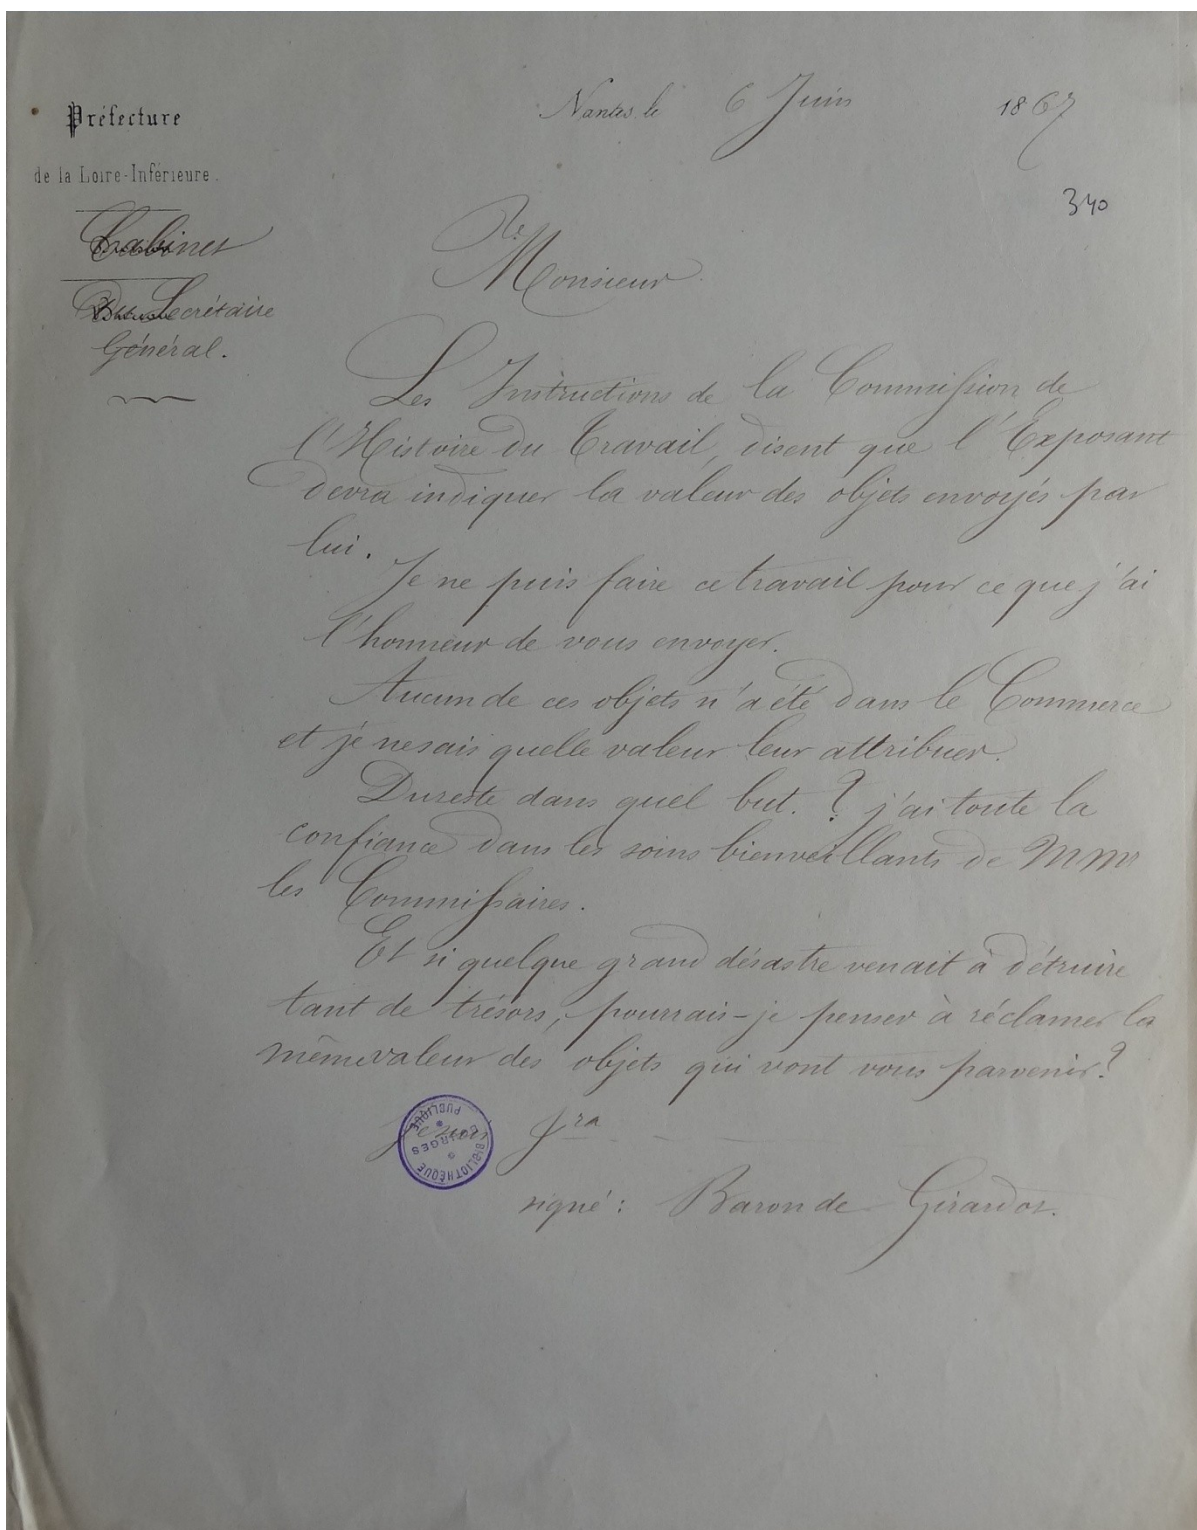 Préfecture
de la Loire-Inférieure.
Cabinet
Du Secrétaire
Général.
Nantes le 6 Juin 1867
340
Monsieur
Les Instructions de la Commission de
l'Histoire du Travail, disent que l'Exposant
devra indiquer la valeur des objets envoyés par
lui.
Je ne puis faire ce travail pour ce que j'ai
l'honneur de vous envoyer.
Aucun de ces objets n'a été dans le Commerce
et je ne sais quelle valeur leur attribuer.
Du reste dans quel but. ? j'ai toute la
confiance dans les soins bienveillants de MMrs
les Commissaires.
Et si quelque grand désastre venait à détruire
tant de trésors, pourrais-je penser à réclamer la
même valeur des objets qui vont vous parvenir?
Je suis
BIBLIOTHÈQUE PUBLIQUE
BOURGES
signé : Baron de Girardot.